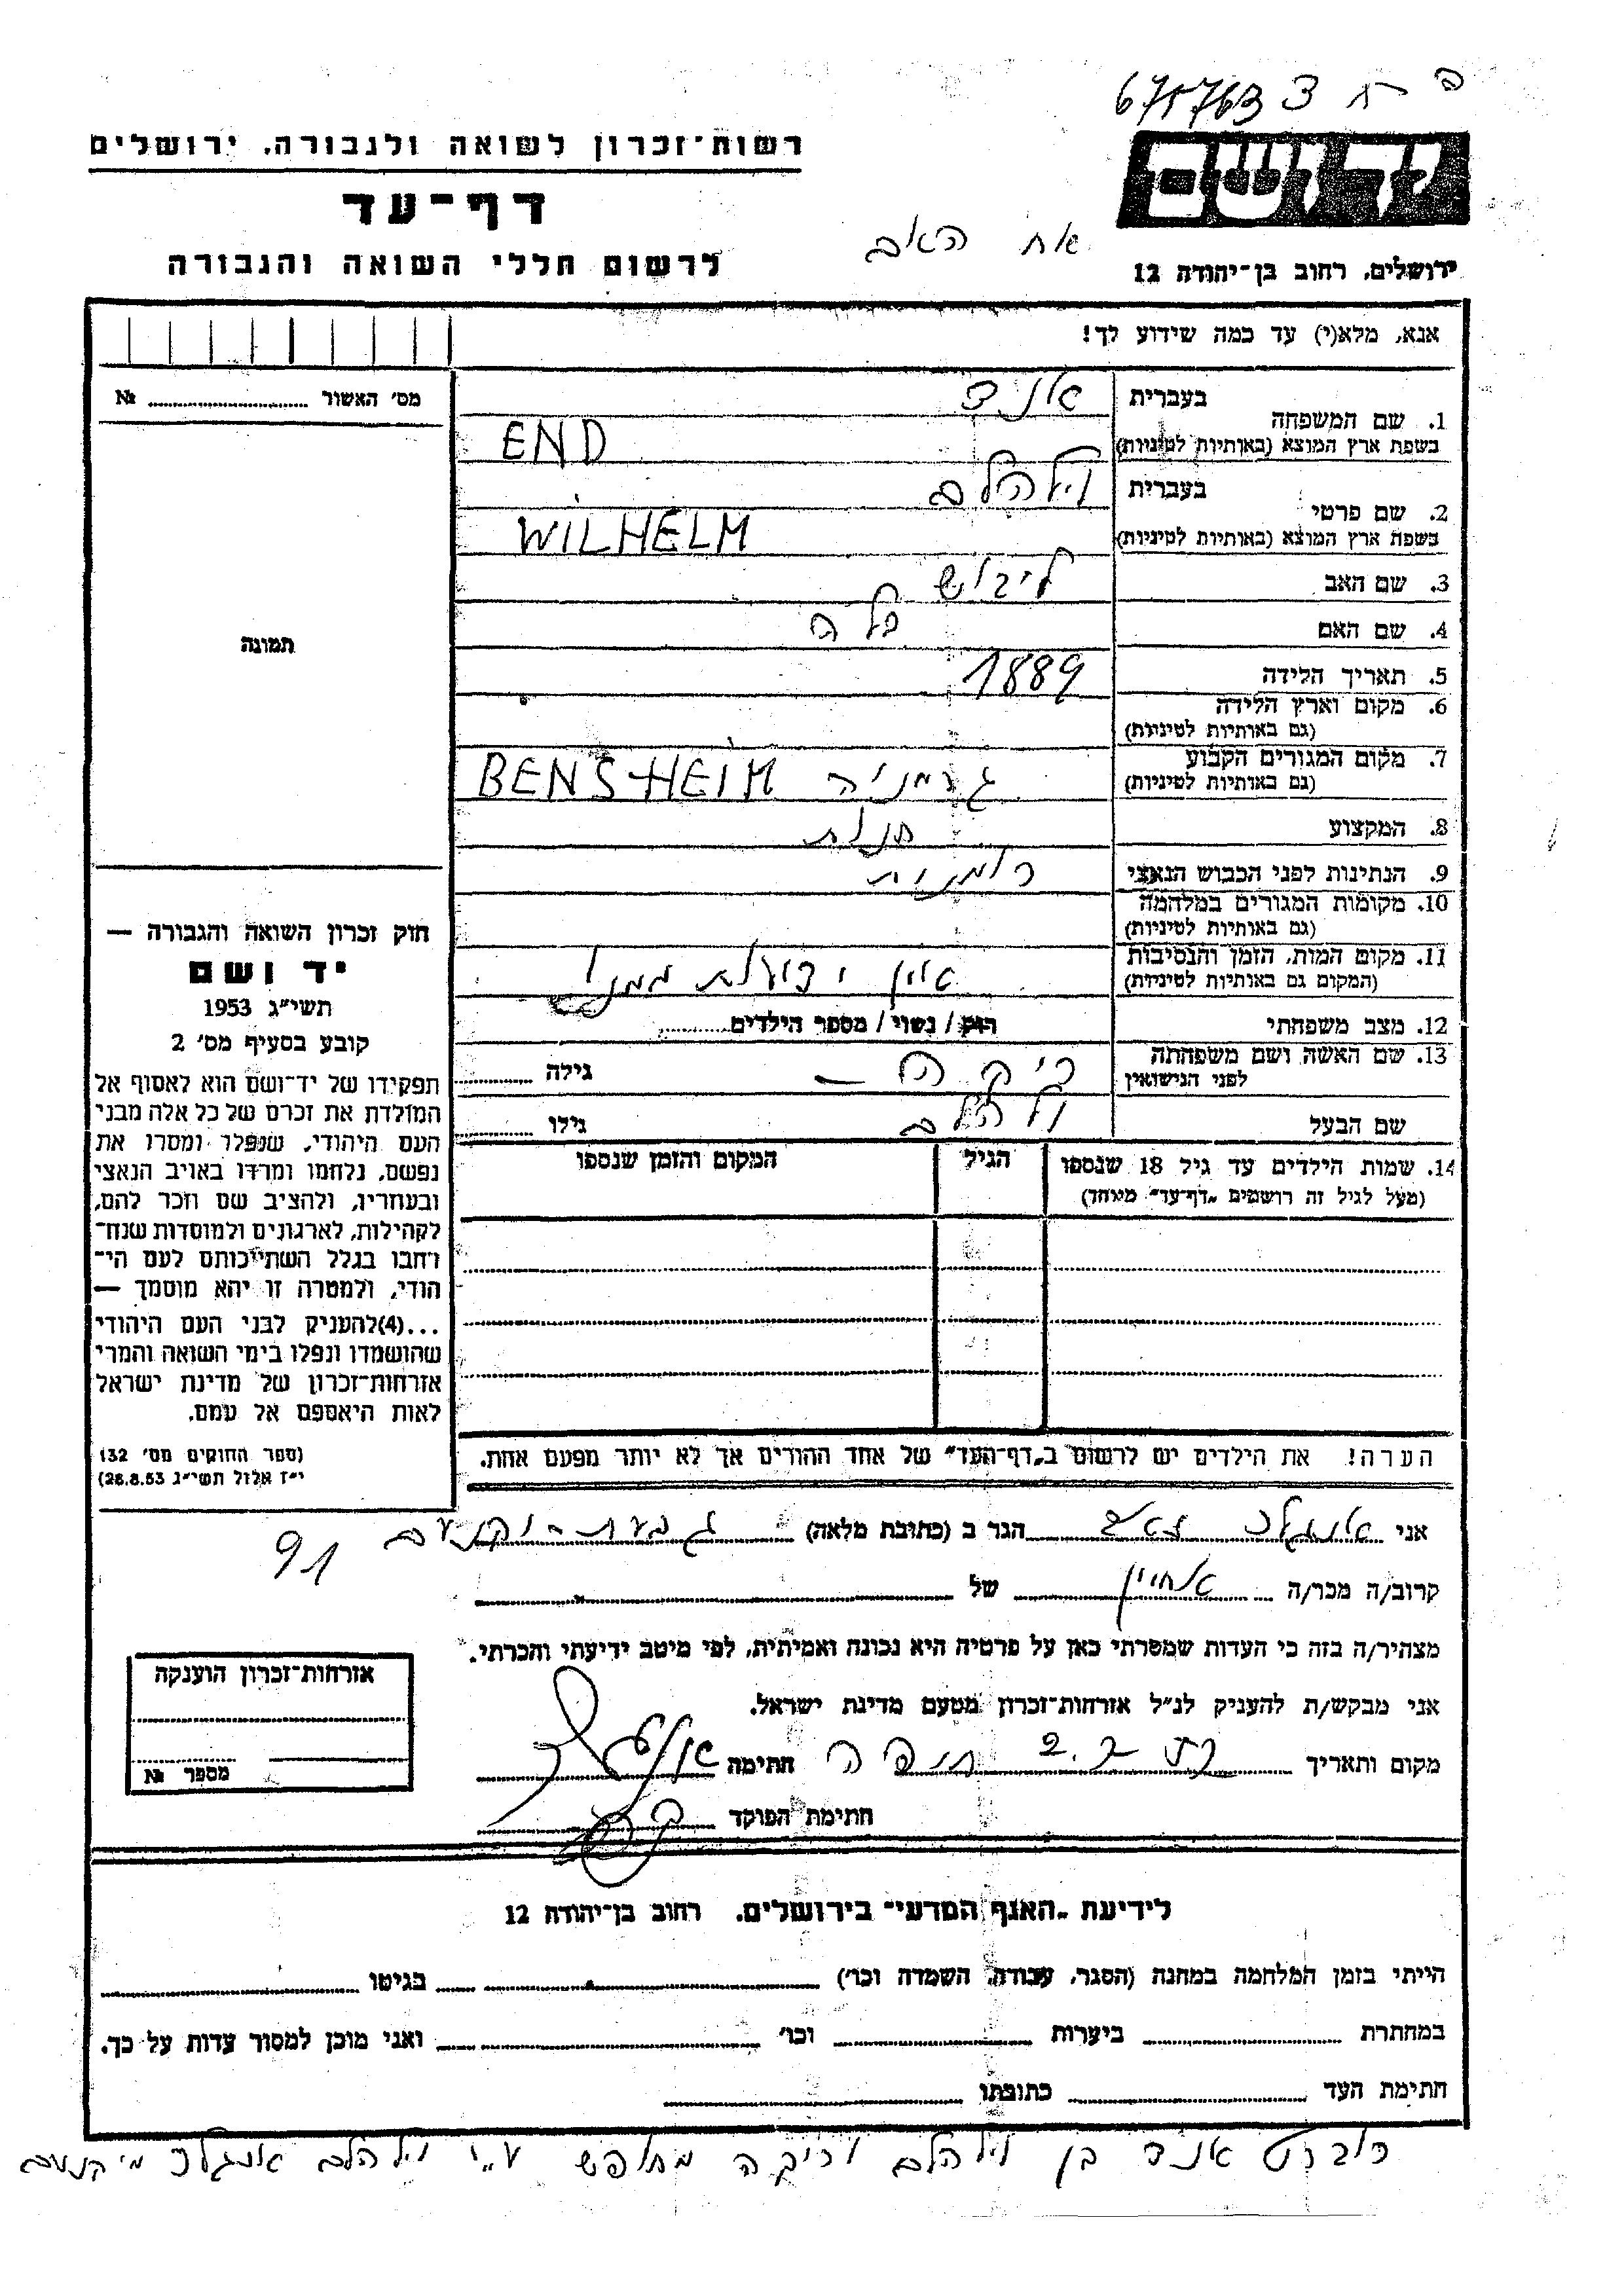 671763 צ ח ה
רשות־זכרון לשואה ולגבורה, ירושלים
יד ושם
דף־עד
אח האב
לרשום חללי השואה והגבורה
ירושלים, רחוב בן־יהודה 12
אנא, מלא(י) עד כמה שידוע לך!
מס' האשור № 
בעברית אנד
1. שם המשפחה
בשפת ארץ המוצא (באותיות לטיניות) END
בעברית וילהלם
2. שם פרטי
בשפת ארץ המוצא (באותיות לטיניות) WILHELM
3. שם האב ליבוש
4. שם האם
תמונה
5. תאריך הלידה 1889
6. מקום וארץ הלידה
(גם באותיות לטיניות)
7. מקום המגורים הקבוע
(גם באותיות לטיניות) גרמניה BENSHEIM
8. המקצוע
9. הנתינות לפני הכבוש הנאצי
10. מקומות המגורים במלחמה
(גם באותיות לטיניות)
11. מקום המות, הזמן והנסיבות
(המקום גם באותיות לטיניות) אין ידיעות ממנו
12. מצב משפחתי רווק / נשוי / מספר הילדים
13. שם האשה ושם משפחתה
לפני הנישואין רבקה — גילה
שם הבעל וילהלם גילו
14. שמות הילדים עד גיל 18 שנספו הגיל המקום והזמן שנספו
(מעל לגיל זה רושמים „דף־עד" מיוחד)
חוק זכרון השואה והגבורה —
יד ושם
תשי"ג 1953
קובע בסעיף מס' 2
תפקידו של יד־ושם הוא לאסוף אל
המולדת את זכרם של כל אלה מבני
העם היהודי, שנפלו ומסרו את
נפשם, נלחמו ומרדו באויב הנאצי
ובעוזריו, ולהציב שם וזכר להם,
לקהילות, לארגונים ולמוסדות שנח־
רחבו בגלל השתייכותם לעם הי־
הודי, ולמטרה זו יהא מוסמך —
...(4)להעניק לבני העם היהודי
שהושמדו ונפלו בימי השואה והמרי
אזרחות־זכרון של מדינת ישראל
לאות היאספם אל עמם.
(ספר החוקים מס' 132
י"ז אלול תשי"ג 28.8.53)
הערה! את הילדים יש לרשום ב„דף־העד" של אחד ההורים אך לא יותר מפעם אחת.
אני אנגלר זאב הגר ב (כתובת מלאה) גבעת-יקנעם 91
קרוב/ה מכר/ה אחיין של
מצהיר/ה בזה כי העדות שמסרתי כאן על פרטיה היא נכונה ואמיתית, לפי מיטב ידיעתי והכרתי.
אני מבקש/ת להעניק לנ"ל אזרחות־זכרון מטעם מדינת ישראל.
מקום ותאריך חיפה חתימה
חתימת הפוקד
אזרחות־זכרון הוענקה
מספר №
לידיעת „האגף המדעי" בירושלים, רחוב בן־יהודה 12
הייתי בזמן המלחמה במחנה (הסגר, עבודה, השמדה וכו') בגיטו
במחתרת ביערות וכו' ואני מוכן למסור עדות על כך.
חתימת העד כתובתו
רוברט אנד בן וילהלם ורבקה מחופש ע"י וילהלם אנגלר מיקנעם